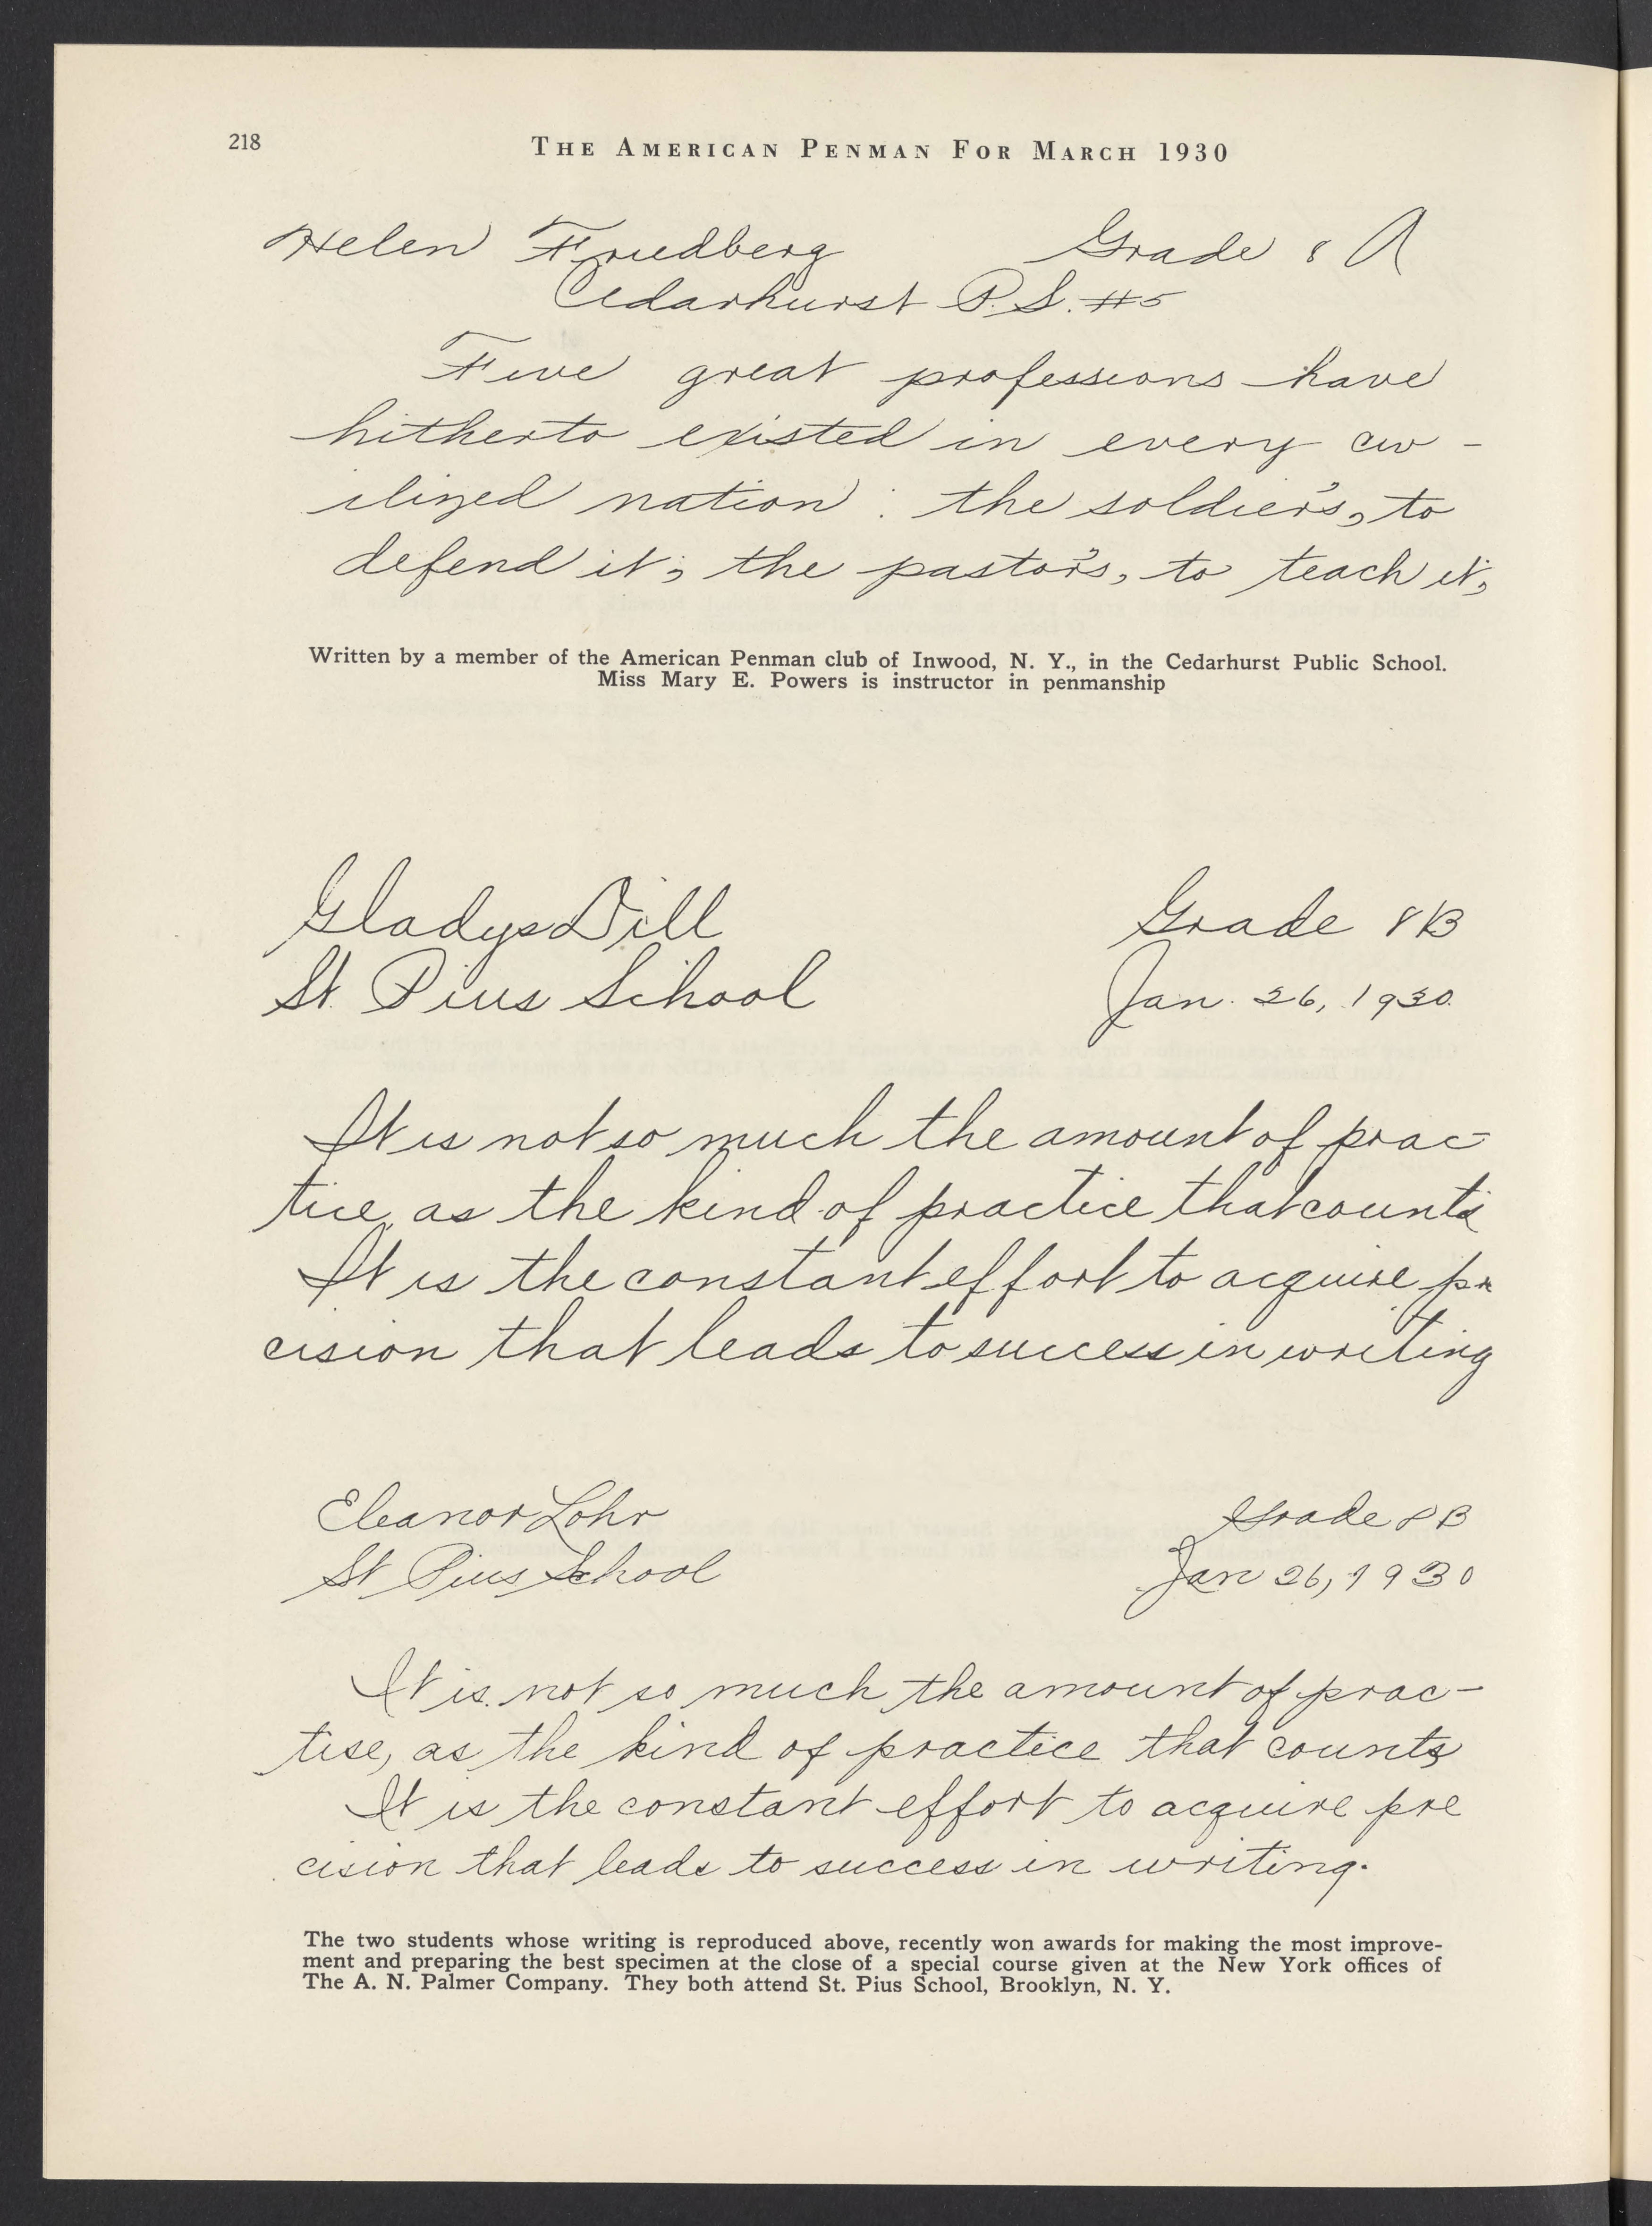 218
THE AMERICAN PENMAN FOR MARCH 1930
Helen Friedberg Grade 8 A
Cedarhurst P.S. #5
Five great professions have
hitherto existed in every civ-
ilized nation: the soldier's, to
defend it; the pastor's, to teach it;
Written by a member of the American Penman club of Inwood, N. Y., in the Cedarhurst Public School.
Miss Mary E. Powers is instructor in penmanship
Gladys Dill Grade 8B
St. Pius School Jan. 26, 1930.
It is not so much the amount of prac-
tice, as the kind of practice that counts
It is the constant effort to acquire pre
cision that leads to success in writing
Eleanor Lohr Grade 8B
St Pius School Jan 26, 1930
It is not so much the amount of prac-
tise, as the kind of practice that counts
It is the constant effort to acquire pre
cision that leads to success in writing.
The two students whose writing is reproduced above, recently won awards for making the most improve-
ment and preparing the best specimen at the close of a special course given at the New York offices of
The A. N. Palmer Company. They both attend St. Pius School, Brooklyn, N. Y.